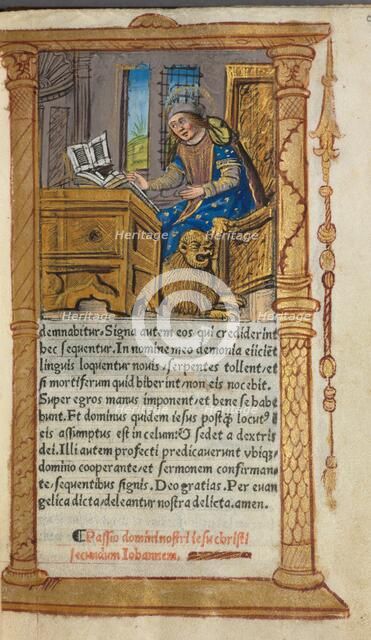 demnabitur. Signa autem eos qui crediderint
hec sequentur. In nomine meo demonia eiiciēt
linguis loquentur nouis, serpentes tollent, et
si mortiferum quid biberint, non eis nocebit.
Super egros manus imponent, et bene se habe
bunt. Et dominus quidem iesus postq̄ locut⁹
eis assumptus est in celum: & sedet a dextris
dei. Illi autem profecti predicauerunt vbiq̨
domino cooperante, et sermonem confirman-
te, sequentibus signis. Deo gratias. Per euan
gelica dicta, deleantur nostra delicta. amen.
¶ Passio domini nostri iesu christi
secundum Iohannem.